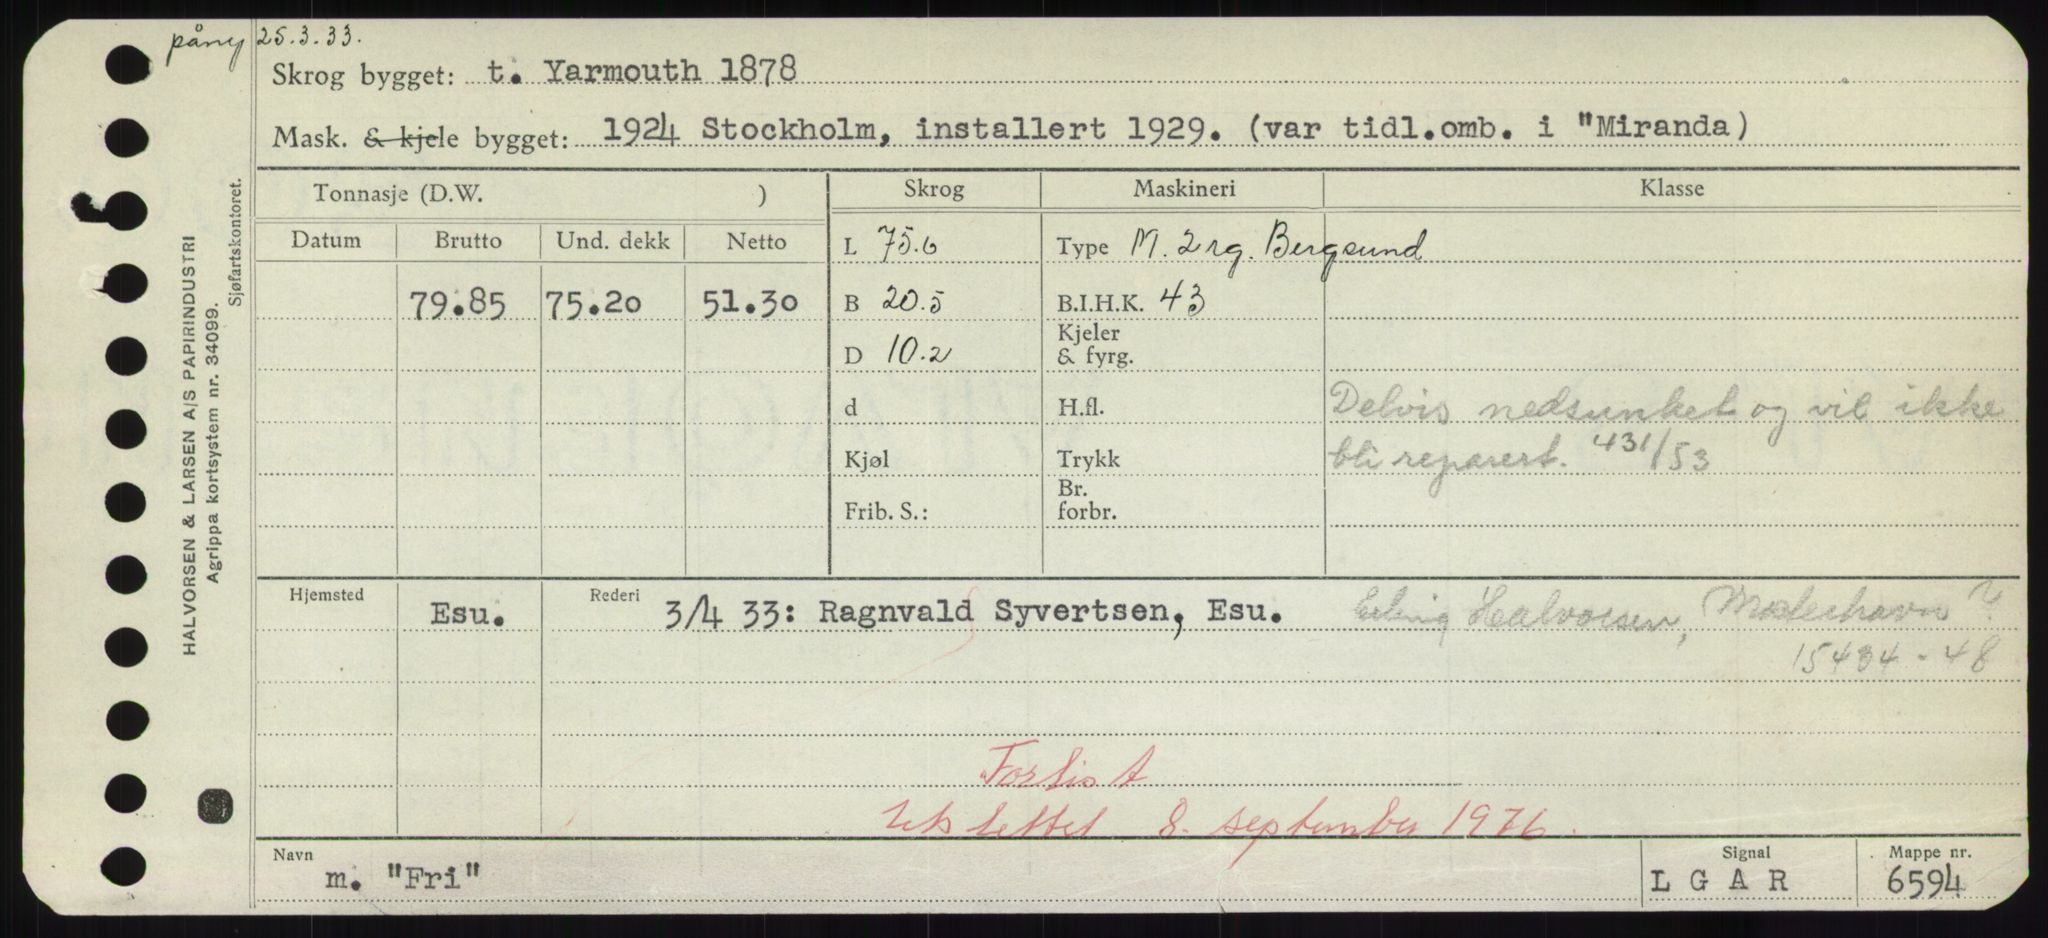 påny 25.3.33.
Skrog bygget: t. Yarmouth 1878
Mask. & kjele bygget: 1924 Stockholm, installert 1929. (var tidl.omb. i "Miranda)
Tonnasje (D.W. )
Skrog
Maskineri
Klasse
Datum
Brutto
Und. dekk
Netto
L 75.6
Type M. 2 rg. Bergsund
79.85
75.20
51.30
B 20.5
B.I.H.K. 43
D 10.2
Kjeler
& fyrg.
d
H.fl.
Delvis nedsunket og vil ikke
Kjøl
Trykk
bli reparert. 431/53
Frib. S.:
Br.
forbr.
Hjemsted
Esu.
Rederi
3/4 33: Ragnvald Syvertsen, Esu.
Erling Halvorsen, Mosterhavn ?
15484-48
Forlist
8. september 1976.
Navn
m. "Fri"
Signal
L G A R
Mappe nr.
6594
HALVORSEN & LARSEN A/S PAPIRINDUSTRI
Agrippa kortsystem nr. 34099.
Sjøfartskontoret.